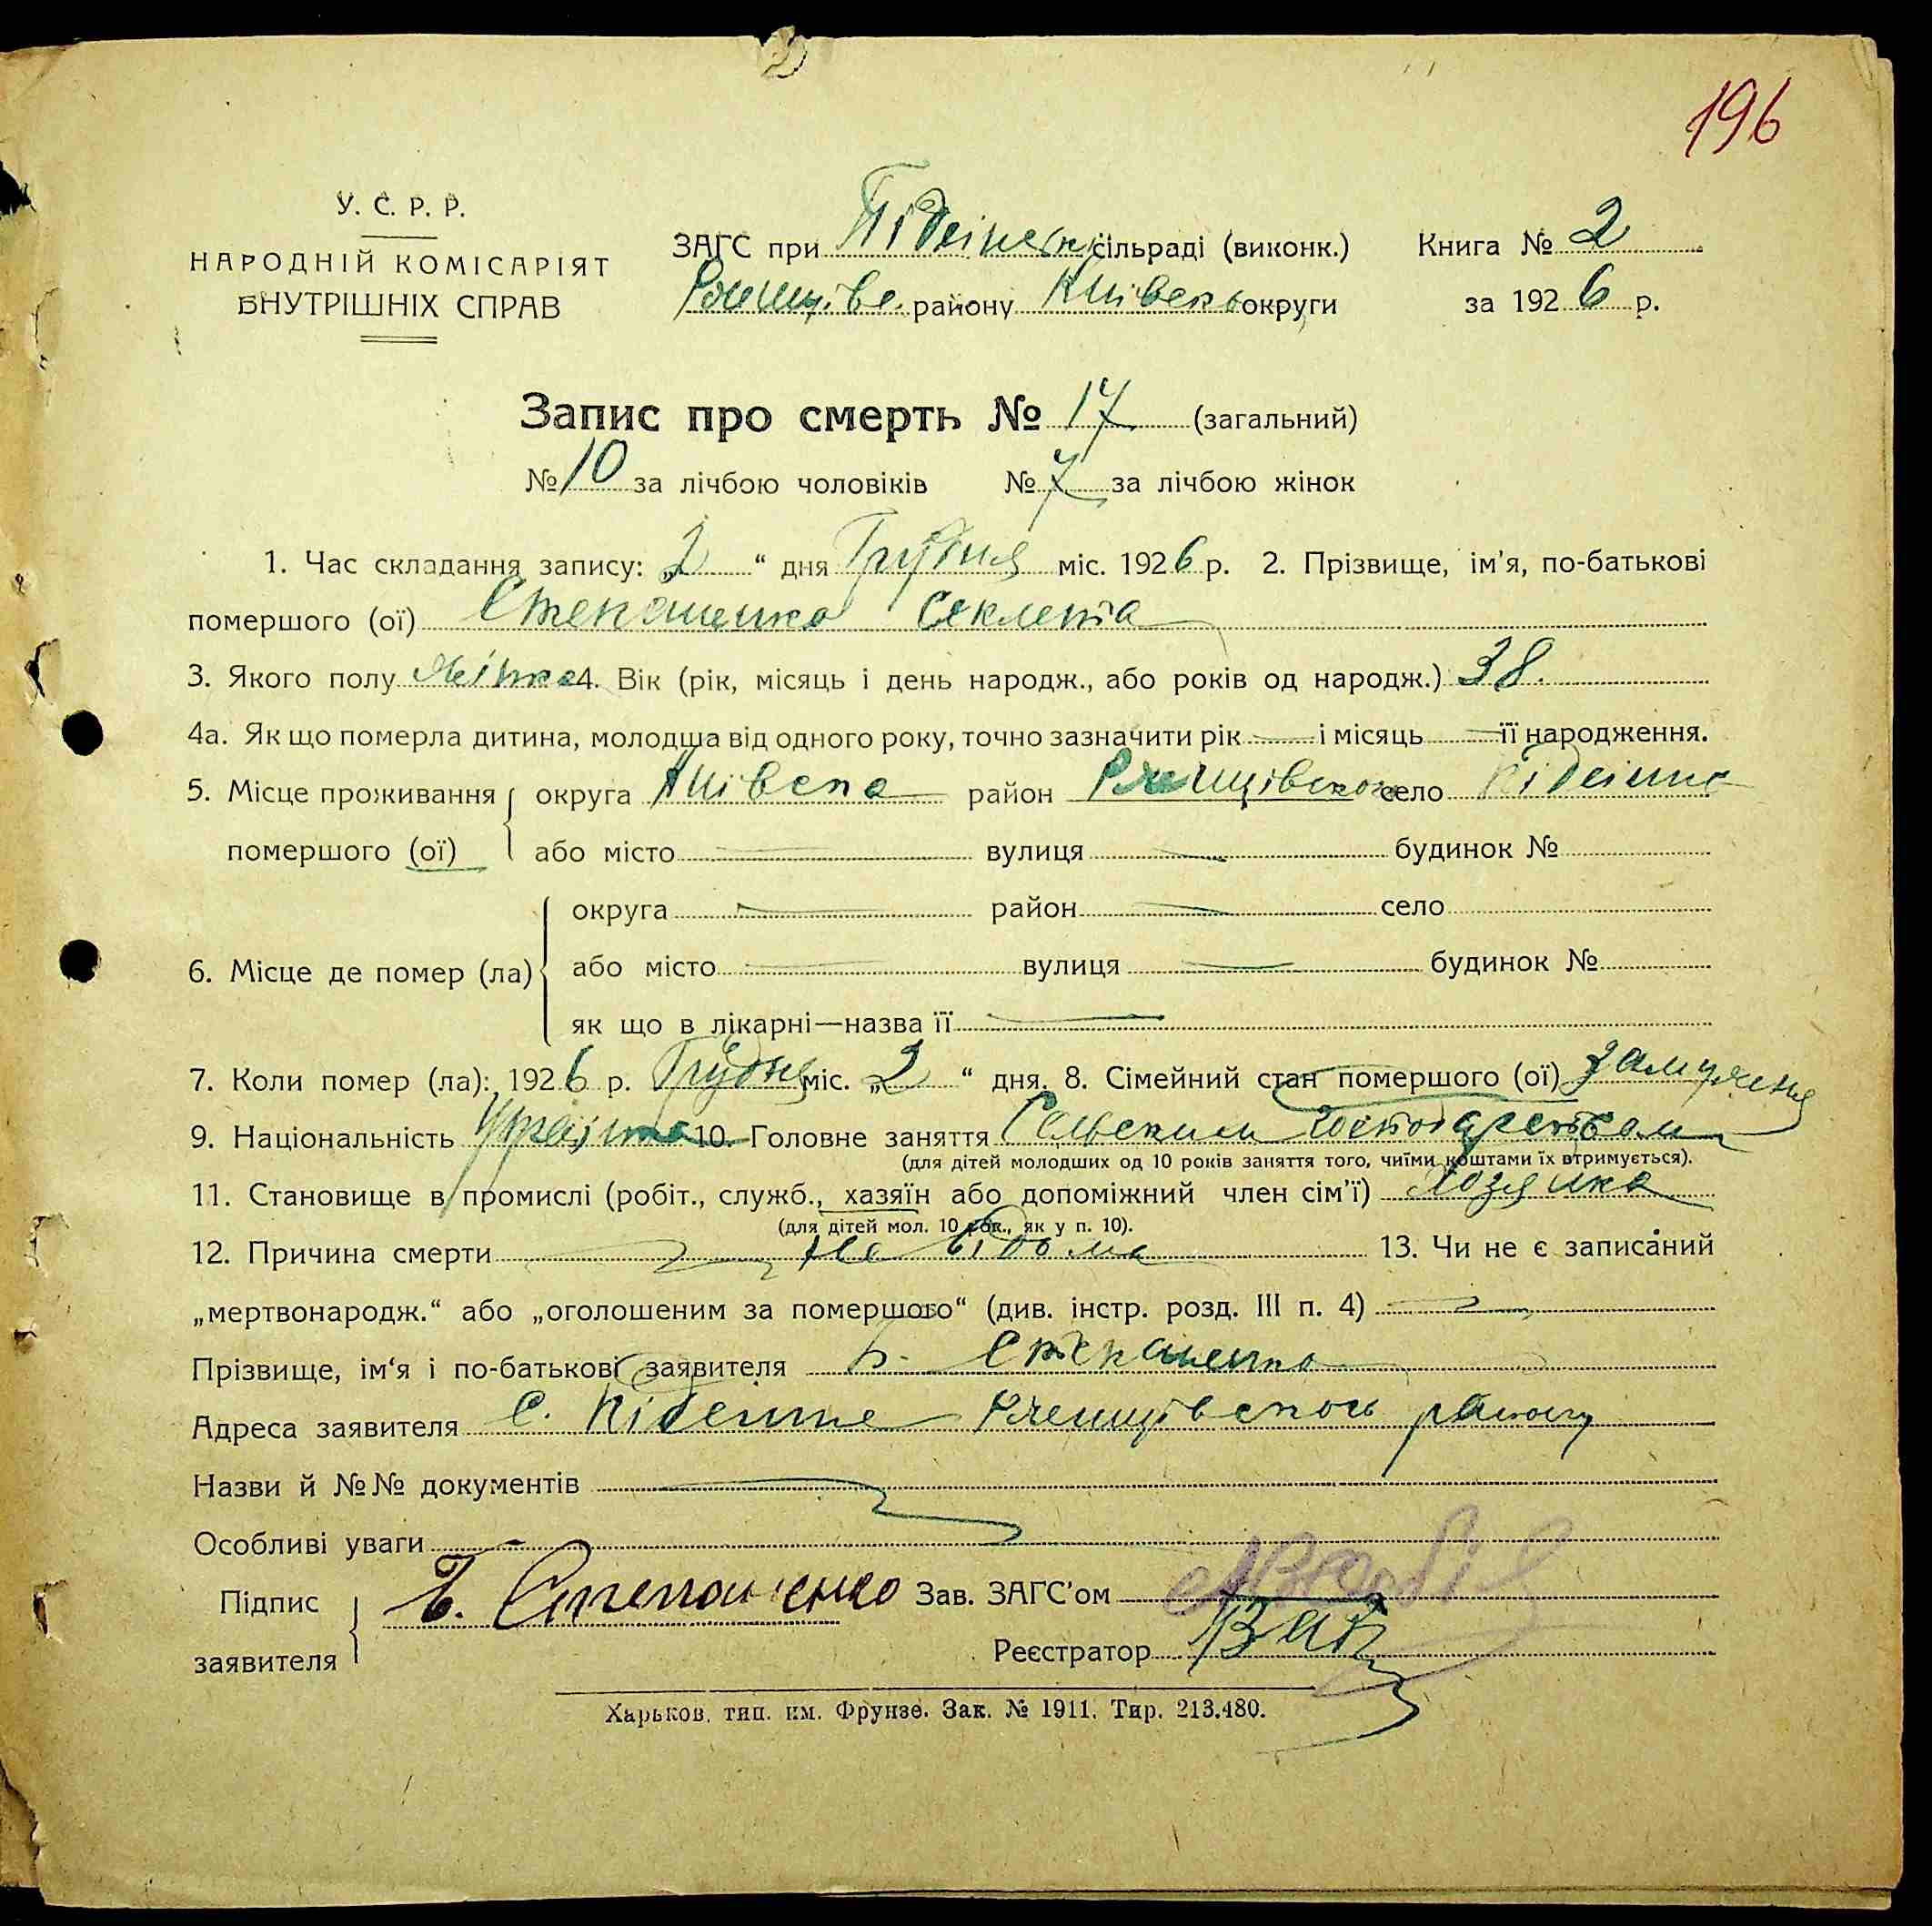 196
У. С. Р. Р.
НАРОДНІЙ КОМІСАРІЯТ
ВНУТРІШНІХ СПРАВ
ЗАГС при сільраді (виконк.) Книга № 2
району Київськ округи за 1926 р.
Запис про смерть № 17 (загальний)
№ 10 за лічбою чоловіків № 7 за лічбою жінок
1. Час складання запису: „2“ дня Грудня міс. 1926 р. 2. Прізвище, ім'я, по-батькові
помершого (ої) Степаненко Секлета
3. Якого полу жінка 4. Вік (рік, місяць і день народж., або років од народж.) 38.
4а. Як що померла дитина, молодша від одного року, точно зазначити рік — і місяць — її народження.
5. Місце проживання помершого (ої) округа Київська район село
або місто — вулиця — будинок №
6. Місце де помер (ла) округа — район — село
або місто — вулиця — будинок №
як що в лікарні—назва її —
7. Коли помер (ла): 1926 р. Грудня міс. „2“ дня. 8. Сімейний стан помершого (ої) замужня
9. Національність 10. Головне заняття Сельским
(для дітей молодших од 10 років заняття того, чиїми коштами їх втримується).
11. Становище в промислі (робіт., служб., хазяїн або допоміжний член сім'ї) хозяика
(для дітей мол. 10 рок., як у п. 10).
12. Причина смерти не відома 13. Чи не є записаний
„мертвонародж.“ або „оголошеним за помершого“ (див. інстр. розд. III п. 4) —
Прізвище, ім'я і по-батькові заявителя Степаненко
Адреса заявителя с. району
Назви й №№ документів
Особливі уваги
Підпис заявителя Степаненко Зав. ЗАГС'ом
Реєстратор
Харьков, тип. им. Фрунзе. Зак. № 1911. Тир. 213.480.